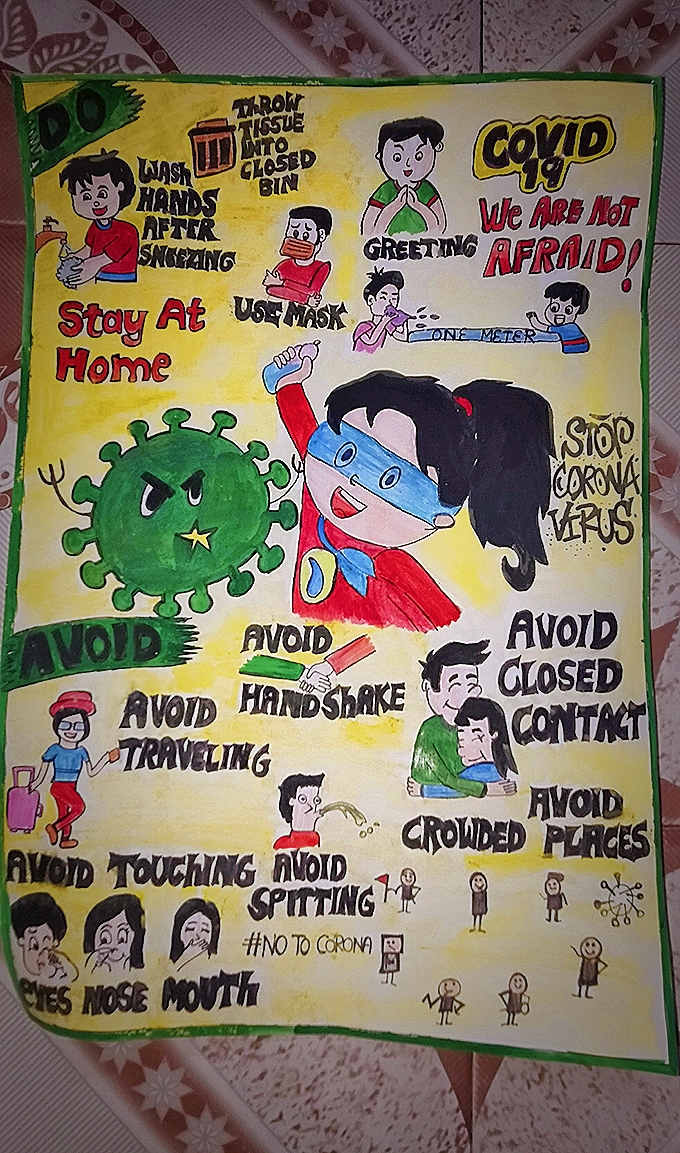 DO
THROW
TISSUE
INTO
CLOSED
BIN
WASH
HANDS
AFTER
SNEEZING
USE MASK
GREETING
COVID
19
WE ARE NOT
AFRAID!
ONE METER
Stay At
Home
STOP
CORONA
VIRUS
AVOID
AVOID
HANDSHAKE
AVOID
CLOSED
CONTACT
AVOID
TRAVELING
AVOID
CROWDED PLACES
AVOID TOUCHING
EYES NOSE MOUTH
AVOID
SPITTING
#NO TO CORONA